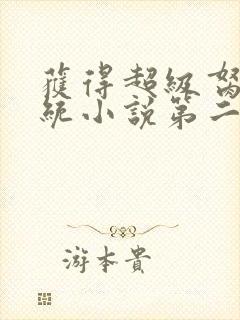 獲得超級
統小說第二
游本貴